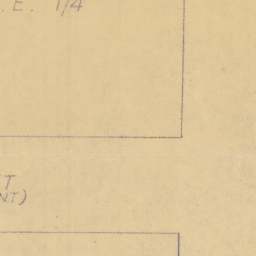 . E. 1/4
T
NT)